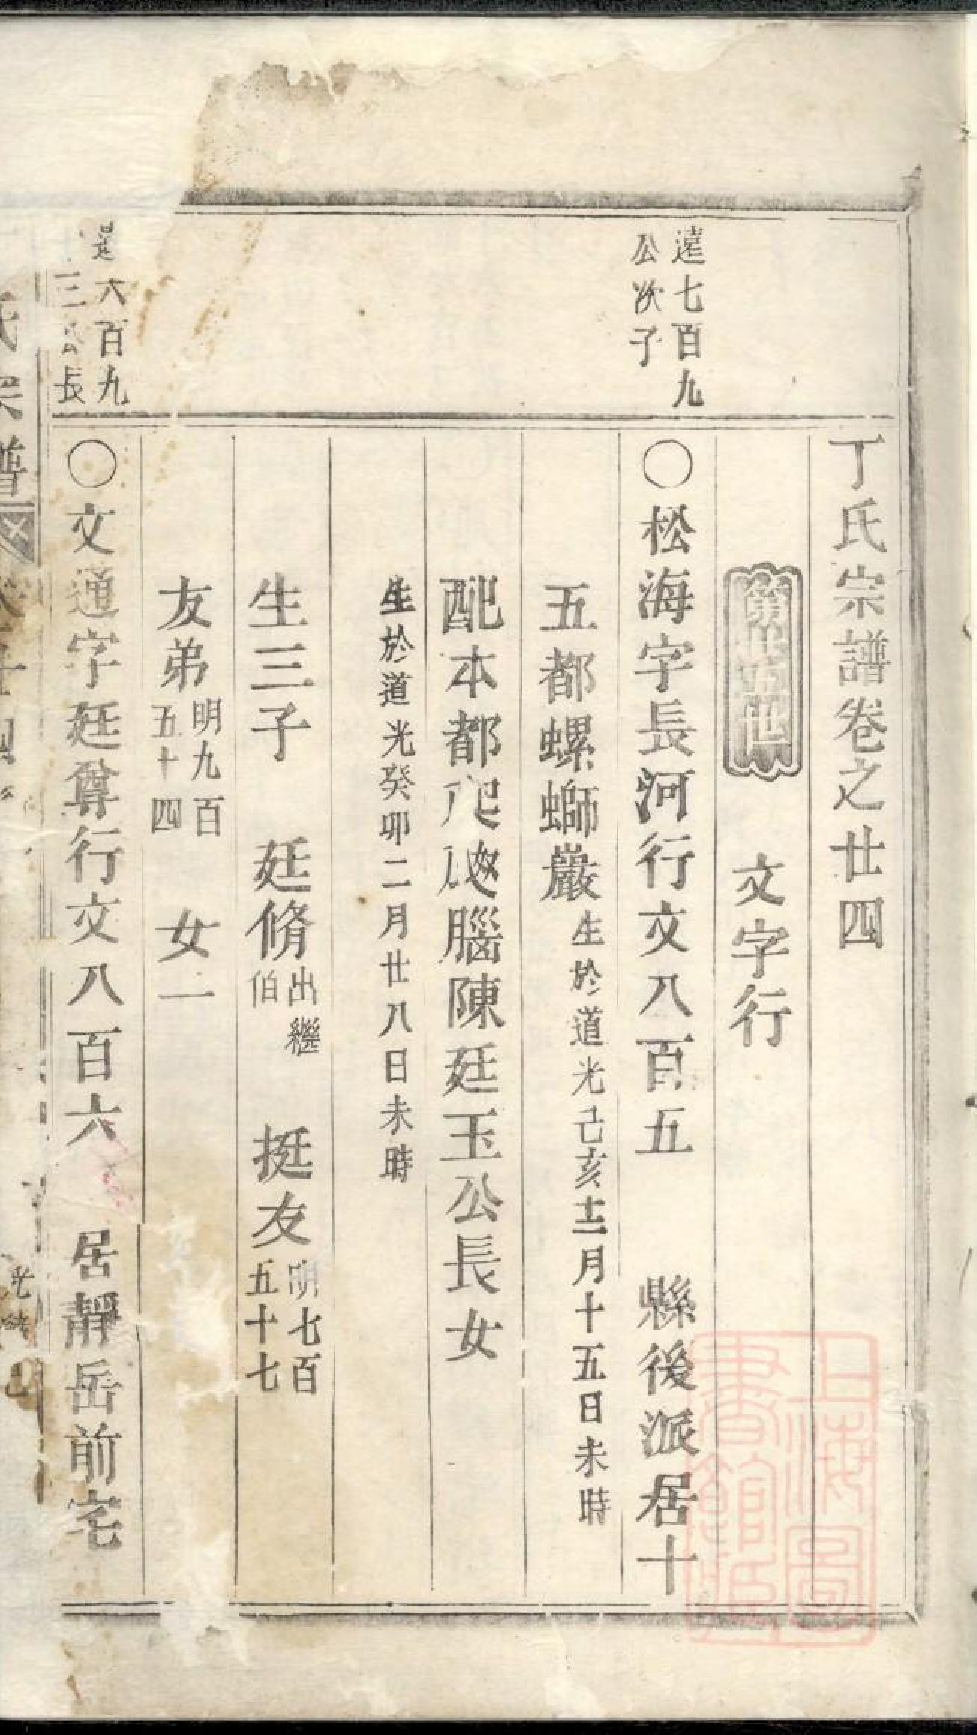 丁氏宗譜卷之廿四
第世五世
文字行
遠七百九
公次子
〇松海字長河行文八百五 縣後派居十
五都螺螄巖生於道光己亥十二月十五日未時
配本都腦陳廷玉公長女
生於道光癸卯二月廿八日未時
生三子 廷脩出繼伯 挺友明七百五十七
友弟明九百五十四 女一
六百九
三公長
〇文通字廷尊行文八百六 居靜岳前宅
氏宗譜
上海圖書館藏